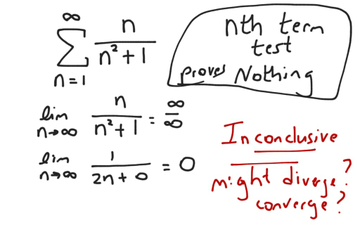 ∞
∑ n/(n²+1)
n=1
nth term
test
proves Nothing
lim n→∞ n/(n²+1) = ∞/∞
lim n→∞ 1/(2n+0) = 0
Inconclusive
might diverge?
converge?